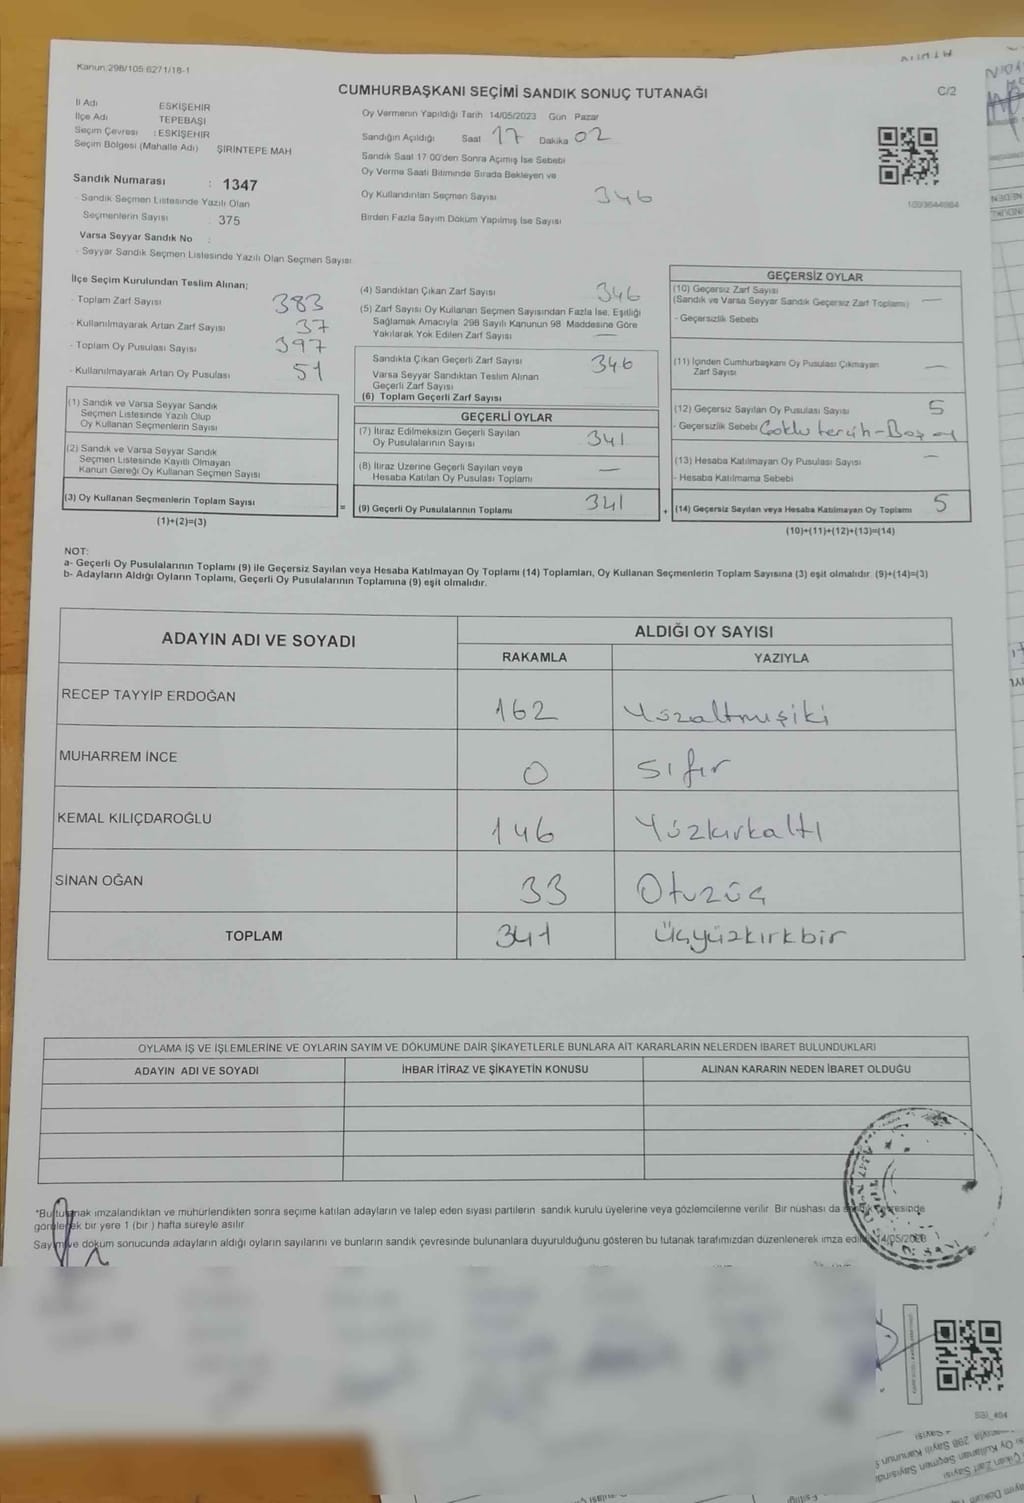 Kanun:298/105:6271/18-1
CUMHURBAŞKANI SEÇİMİ SANDIK SONUÇ TUTANAĞI
C/2
İl Adı ESKİŞEHİR
İlçe Adı TEPEBAŞI
Seçim Çevresi : ESKİŞEHİR
Seçim Bölgesi (Mahalle Adı) ŞİRİNTEPE MAH
Sandık Numarası : 1347
- Sandık Seçmen Listesinde Yazılı Olan
Seçmenlerin Sayısı 375
Varsa Seyyar Sandık No :
- Seyyar Sandık Seçmen Listesinde Yazılı Olan Seçmen Sayısı
Oy Vermenin Yapıldığı Tarih 14/05/2023 Gün Pazar
Sandığın Açıldığı Saat 17 Dakika 02
Sandık Saat 17:00'den Sonra Açılmış İse Sebebi
Oy Verme Saati Bitiminde Sırada Bekleyen ve
Oy Kullandırılan Seçmen Sayısı 346
Birden Fazla Sayım Döküm Yapılmış İse Sayısı
İlçe Seçim Kurulundan Teslim Alınan;
- Toplam Zarf Sayısı 383
- Kullanılmayarak Artan Zarf Sayısı 37
- Toplam Oy Pusulası Sayısı 397
- Kullanılmayarak Artan Oy Pusulası 51
(1) Sandık ve Varsa Seyyar Sandık
Seçmen Listesinde Yazılı Olup
Oy Kullanan Seçmenlerin Sayısı
(2) Sandık ve Varsa Seyyar Sandık
Seçmen Listesinde Kayıtlı Olmayan
Kanun Gereği Oy Kullanan Seçmen Sayısı
(3) Oy Kullanan Seçmenlerin Toplam Sayısı
(1)+(2)=(3)
(4) Sandıktan Çıkan Zarf Sayısı 346
(5) Zarf Sayısı Oy Kullanan Seçmen Sayısından Fazla İse, Eşitliği
Sağlamak Amacıyla 298 Sayılı Kanunun 98 Maddesine Göre
Yakılarak Yok Edilen Zarf Sayısı —
Sandıkta Çıkan Geçerli Zarf Sayısı 346
Varsa Seyyar Sandıktan Teslim Alınan
Geçerli Zarf Sayısı
(6) Toplam Geçerli Zarf Sayısı
GEÇERLİ OYLAR
(7) İtiraz Edilmeksizin Geçerli Sayılan
Oy Pusulalarının Sayısı 341
(8) İtiraz Üzerine Geçerli Sayılan veya
Hesaba Katılan Oy Pusulası Toplamı —
= (9) Geçerli Oy Pusulalarının Toplamı 341
GEÇERSİZ OYLAR
(10) Geçersiz Zarf Sayısı
(Sandık ve Varsa Seyyar Sandık Geçersiz Zarf Toplamı) —
- Geçersizlik Sebebi
(11) İçinden Cumhurbaşkanı Oy Pusulası Çıkmayan
Zarf Sayısı —
(12) Geçersiz Sayılan Oy Pusulası Sayısı 5
- Geçersizlik Sebebi Çoklu tercih-Boş oy
(13) Hesaba Katılmayan Oy Pusulası Sayısı —
- Hesaba Katılmama Sebebi
+ (14) Geçersiz Sayılan veya Hesaba Katılmayan Oy Toplamı 5
(10)+(11)+(12)+(13)=(14)
NOT:
a- Geçerli Oy Pusulalarının Toplamı (9) ile Geçersiz Sayılan veya Hesaba Katılmayan Oy Toplamı (14) Toplamları, Oy Kullanan Seçmenlerin Toplam Sayısına (3) eşit olmalıdır (9)+(14)=(3)
b- Adayların Aldığı Oyların Toplamı, Geçerli Oy Pusulalarının Toplamına (9) eşit olmalıdır.
ADAYIN ADI VE SOYADI
ALDIĞI OY SAYISI
RAKAMLA YAZIYLA
RECEP TAYYİP ERDOĞAN 162 Yüzaltmışiki
MUHARREM İNCE 0 Sıfır
KEMAL KILIÇDAROĞLU 146 Yüzkırkaltı
SİNAN OĞAN 33 Otuzüç
TOPLAM 341 Üçyüzkırkbir
OYLAMA İŞ VE İŞLEMLERİNE VE OYLARIN SAYIM VE DÖKÜMÜNE DAİR ŞİKAYETLERLE BUNLARA AİT KARARLARIN NELERDEN İBARET BULUNDUKLARI
ADAYIN ADI VE SOYADI İHBAR İTİRAZ VE ŞİKAYETİN KONUSU ALINAN KARARIN NEDEN İBARET OLDUĞU
*Bu tutanak imzalandıktan ve mühürlendikten sonra seçime katılan adayların ve talep eden siyasi partilerin sandık kurulu üyelerine veya gözlemcilerine verilir. Bir nüshası da sandık çevresinde
görülecek bir yere 1 (bir ) hafta süreyle asılır
Sayım ve döküm sonucunda adayların aldığı oyların sayılarını ve bunların sandık çevresinde bulunanlara duyurulduğunu gösteren bu tutanak tarafımızdan düzenlenerek imza edildi 14/05/2023